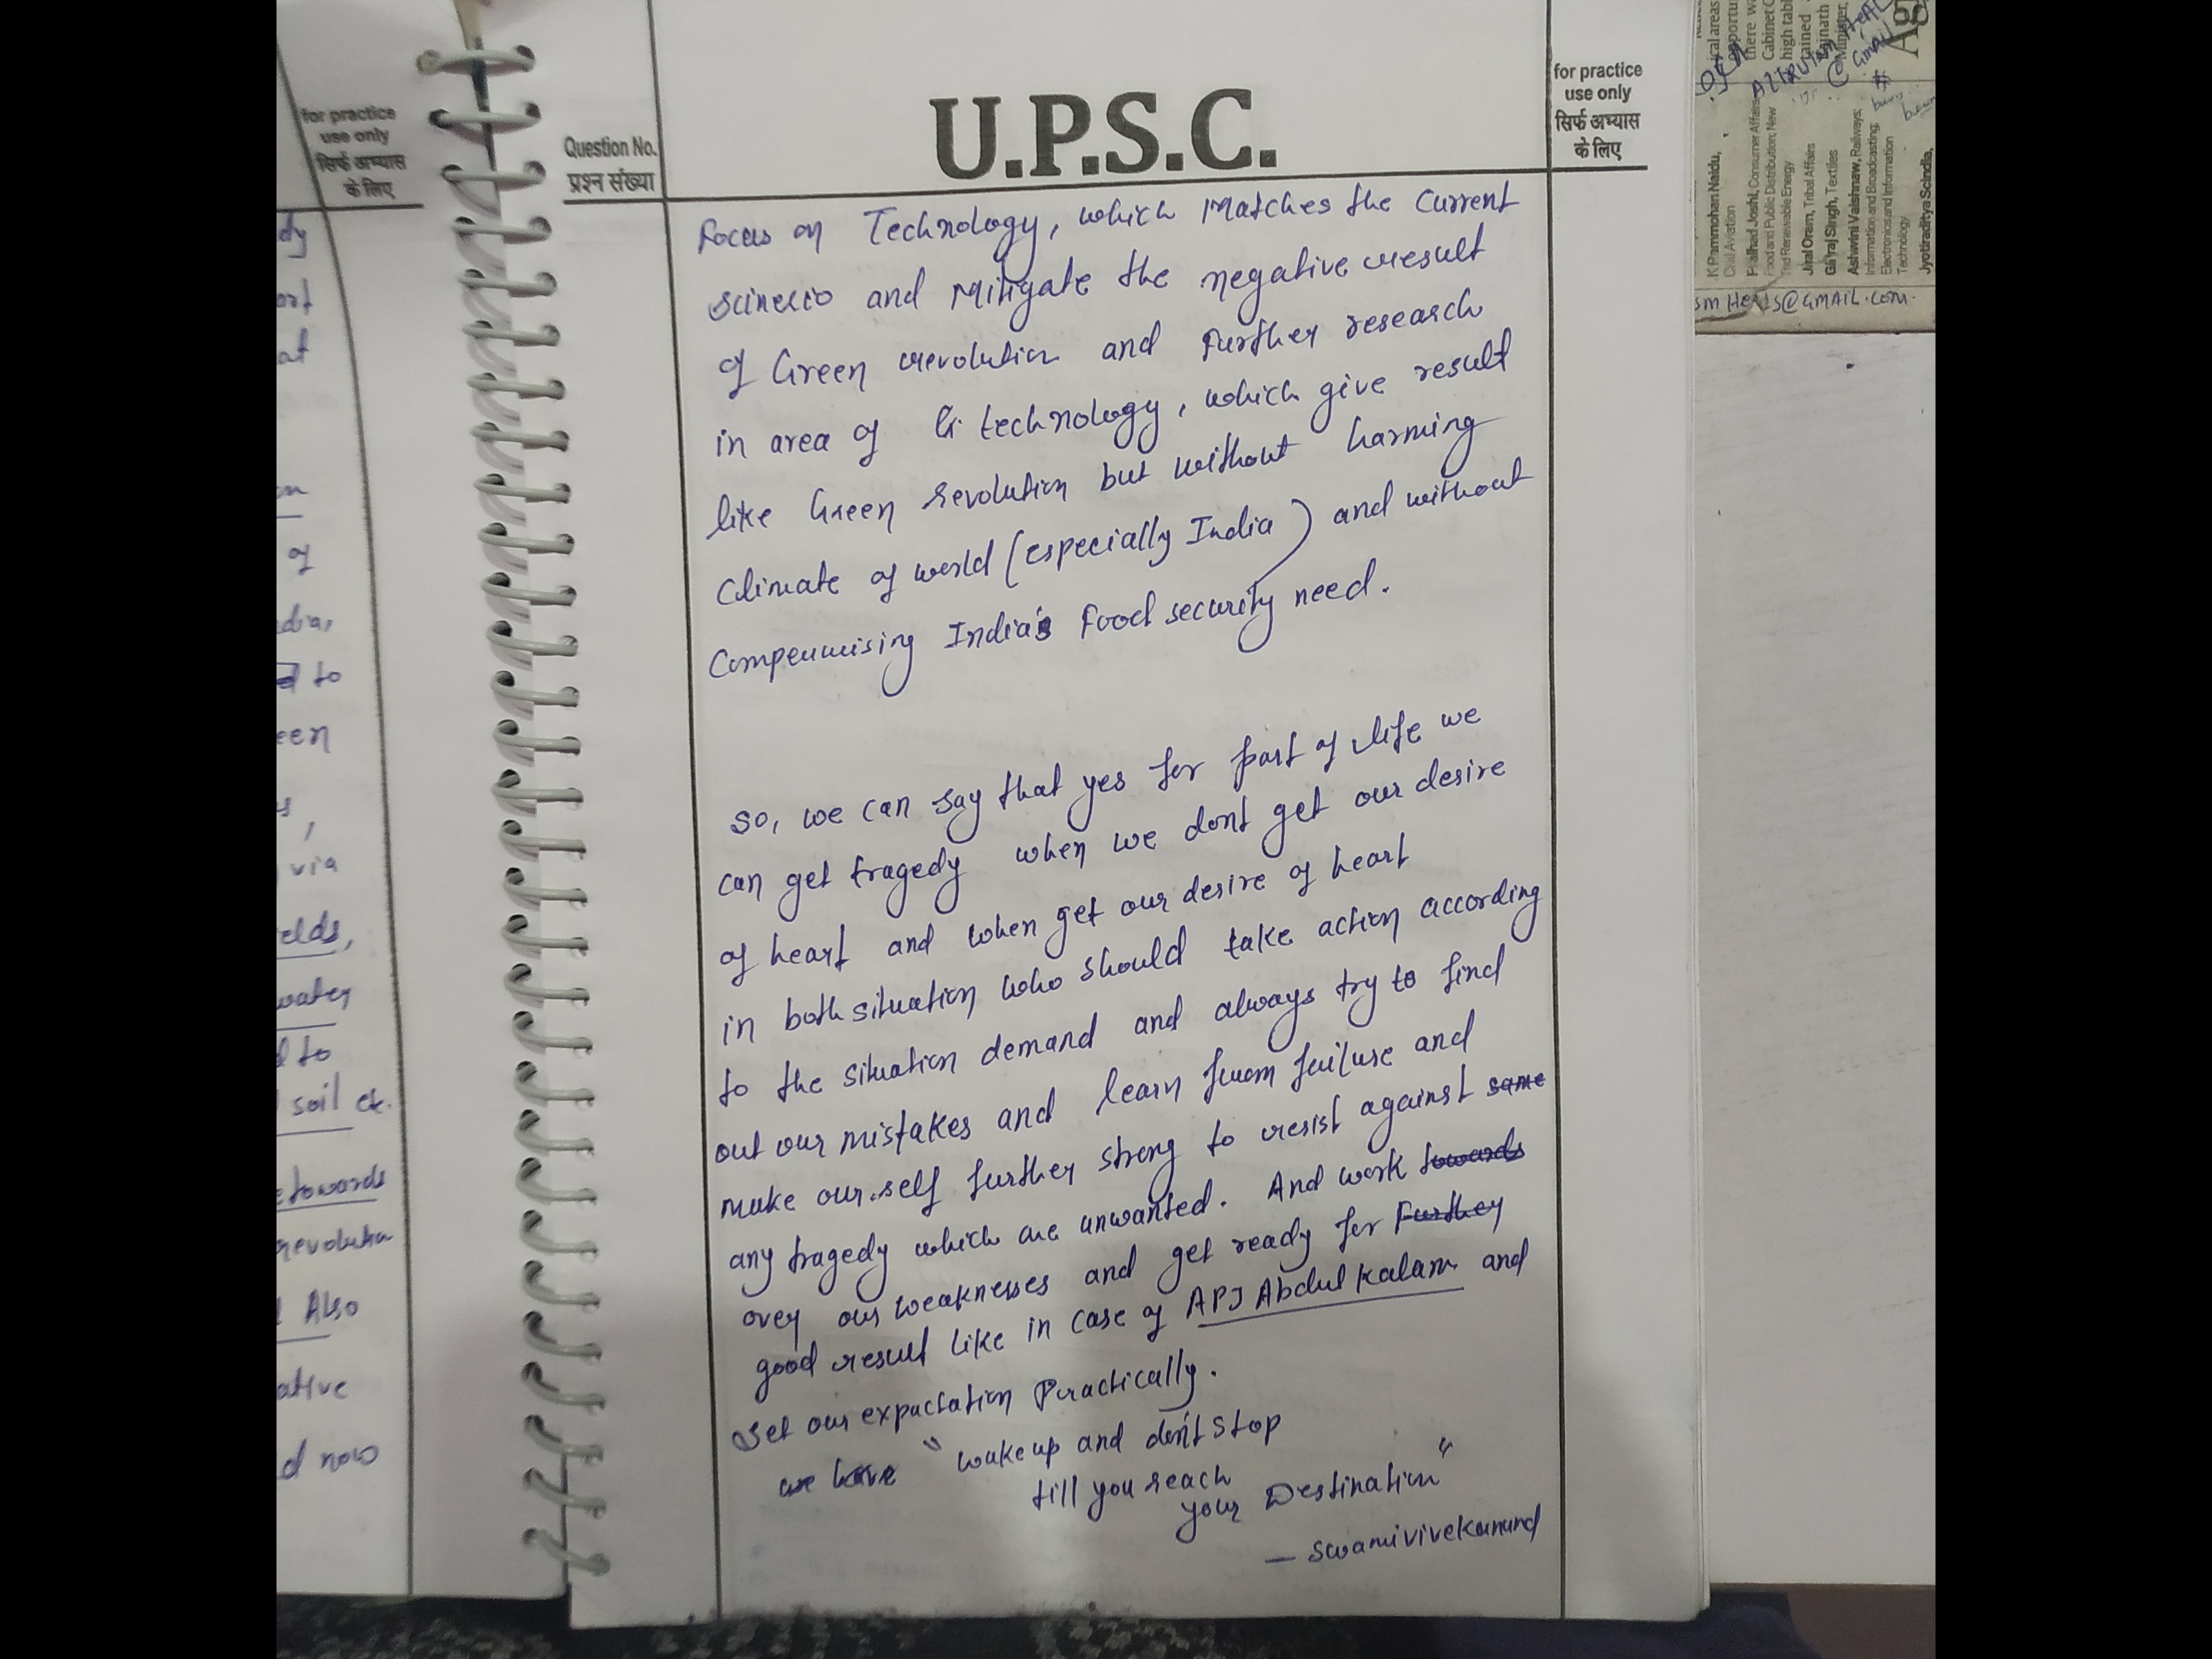 for practice
use only
सिर्फ अभ्यास
के लिए
dy
ort
at
of
dia,
to
een
via
elds,
water
to
soil etc.
towards
Also
ative
d now
Question No.
प्रश्न संख्या
U.P.S.C.
for practice
use only
सिर्फ अभ्यास
के लिए
Focus on Technology, which Matches the Current
scinerio and Mitigate the negative result
of Green revolution and Further research
in area of technology, which give result
like Green revolution but without harming
Climate of world (especially India) and without
Compenmising India's Food security need.
So, we can say that yes for part of life we
can get tragedy when we dont get our desire
of heart and when get our desire of heart
in both situation who should take action according
to the situation demand and always try to find
out our mistakes and learn from failure and
make our self further strong to resist against same
any tragedy which are unwanted. And work towards
over our weaknesses and get ready for Further
good result like in case of APJ Abdul Kalam and
Set our expactation Practically.
we have "wake up and don't stop
till you reach
your Destination"
— Swamivivekanand
K Rammohan Naidu,
Civil Aviation
Pralhad Joshi, Consumer Affairs,
Food and Public Distribution; New
and Renewable Energy
Jual Oram, Tribal Affairs
Giriraj Singh, Textiles
Ashwini Vaishnaw, Railways;
Information and Broadcasting;
Electronics and Information
Technology
Jyotiraditya Scindia,